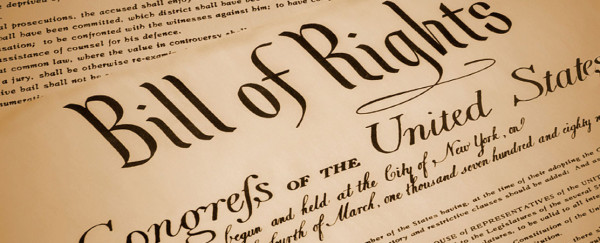 deprived of
l prosecutions, the accused shall enjoy
hall have been committed, which district shall have be
sation; to be confronted with the witnesses against him; to have con
assistance of counsel for his defence.
t common law, where the value in controversy shall
a jury, shall be otherwise re-exami
ive bail shall not be
numerati
Bill of Rights
Congreſs OF THE United States
begun and held at the City of New York, on
fourth of March, one thousand seven hundred and eighty n
mber of the States having, at the time of their adopting the
ory and restrictive clauses should be added: And
OUSE of REPRESENTATIVES of the UNITE
to the Legislatures of the several
to be valid to all inte
stitution of the